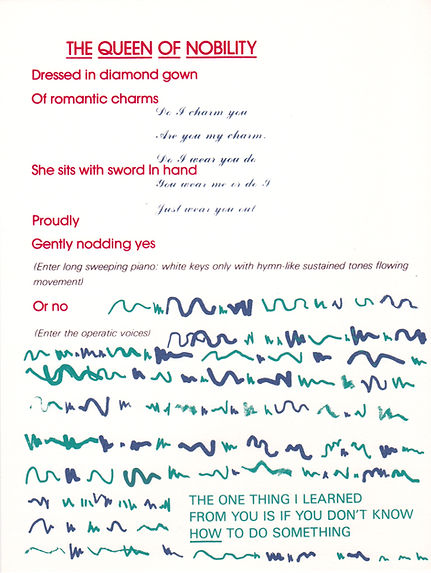 THE QUEEN OF NOBILITY
Dressed in diamond gown
Of romantic charms
Do I charm you
Are you my charm.
Do I wear you do
She sits with sword In hand
You wear me or do I
Just wear you out
Proudly
Gently nodding yes
(Enter long sweeping piano: white keys only with hymn-like sustained tones flowing
movement)
Or no
(Enter the operatic voices)
THE ONE THING I LEARNED
FROM YOU IS IF YOU DON'T KNOW
HOW TO DO SOMETHING